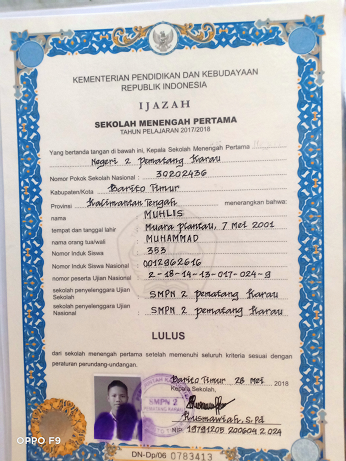 KEMENTERIAN PENDIDIKAN DAN KEBUDAYAAN
REPUBLIK INDONESIA
IJAZAH
SEKOLAH MENENGAH PERTAMA
TAHUN PELAJARAN 2017/2018
Yang bertanda tangan di bawah ini, Kepala Sekolah Menengah Pertama
Negeri 2 Pematang Karau
Nomor Pokok Sekolah Nasional : 30202436
Kabupaten/Kota Barito Timur
Provinsi Kalimantan Tengah menerangkan bahwa:
nama : MUHLIS
tempat dan tanggal lahir : Muara Plantau, 7 Mei 2001
nama orang tua/wali : MUHAMMAD
Nomor Induk Siswa : 353
Nomor Induk Siswa Nasional : 0012962616
nomor peserta Ujian Nasional : 2-18-14-13-017-024-9
sekolah penyelenggara Ujian Sekolah : SMPN 2 Pematang Karau
sekolah penyelenggara Ujian Nasional : SMPN 2 Pematang Karau
LULUS
dari sekolah menengah pertama setelah memenuhi seluruh kriteria sesuai dengan
peraturan perundang-undangan.
Barito Timur 28 Mei 2018
Kepala Sekolah,
SMPN 2
PEMATANG KARAU
Rusmawiah, S.Pd
NIP. 19791205 200604 2 024
DN-Dp/06 0783413
OPPO F9